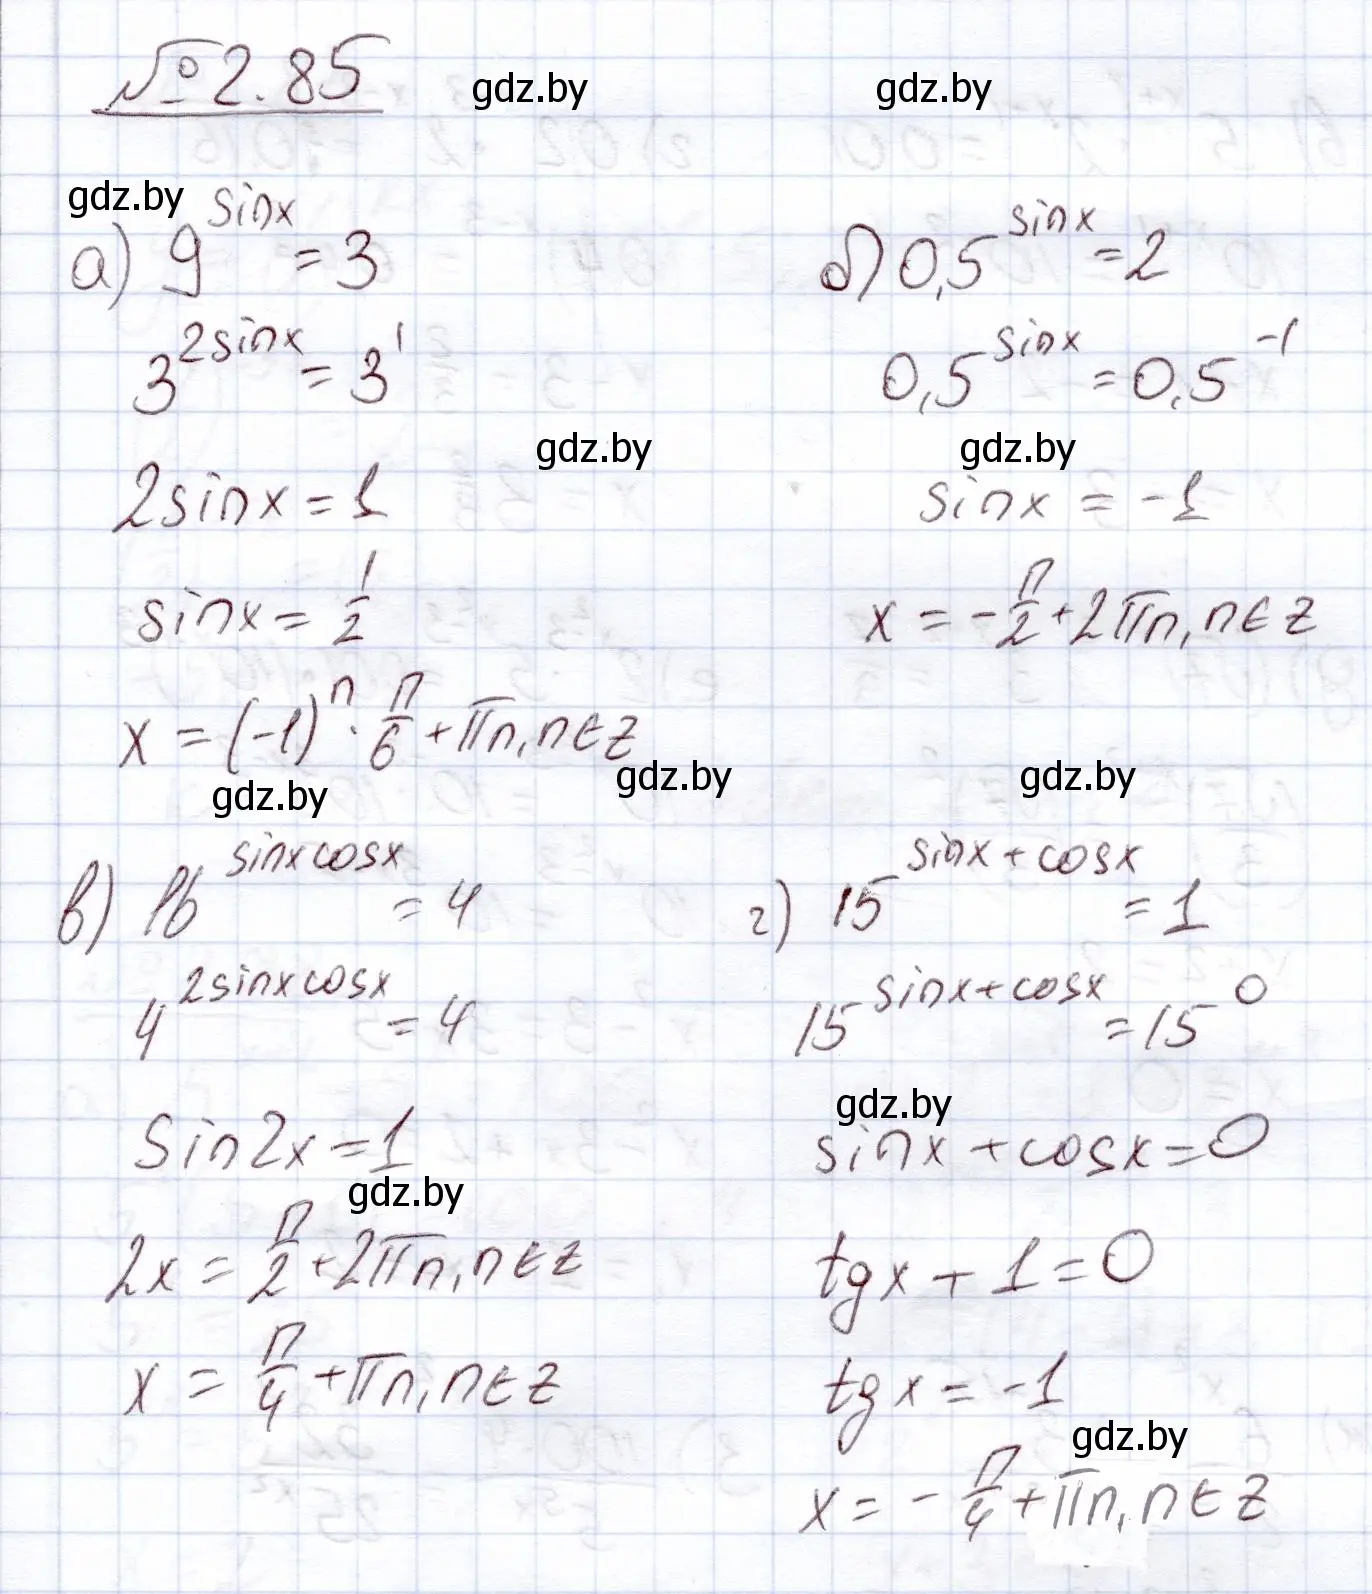 № 2.85
gdz.by gdz.by
gdz.by
а) 9^sinx = 3
3^2sinx = 3^1
gdz.by
2sinx = 1
sinx = 1/2
x = (-1)^n · π/6 + πn, n∈Z
gdz.by
б) 0,5^sinx = 2
0,5^sinx = 0,5^-1
gdz.by
sinx = -1
x = -π/2 + 2πn, n∈Z
gdz.by gdz.by
в) 16^sinxcosx = 4
4^2sinxcosx = 4
sin2x = 1
gdz.by
2x = π/2 + 2πn, n∈Z
x = π/4 + πn, n∈Z
г) 15^sinx+cosx = 1
15^sinx+cosx = 15^0
gdz.by
sinx + cosx = 0
tgx + 1 = 0
tgx = -1
gdz.by
x = -π/4 + πn, n∈Z